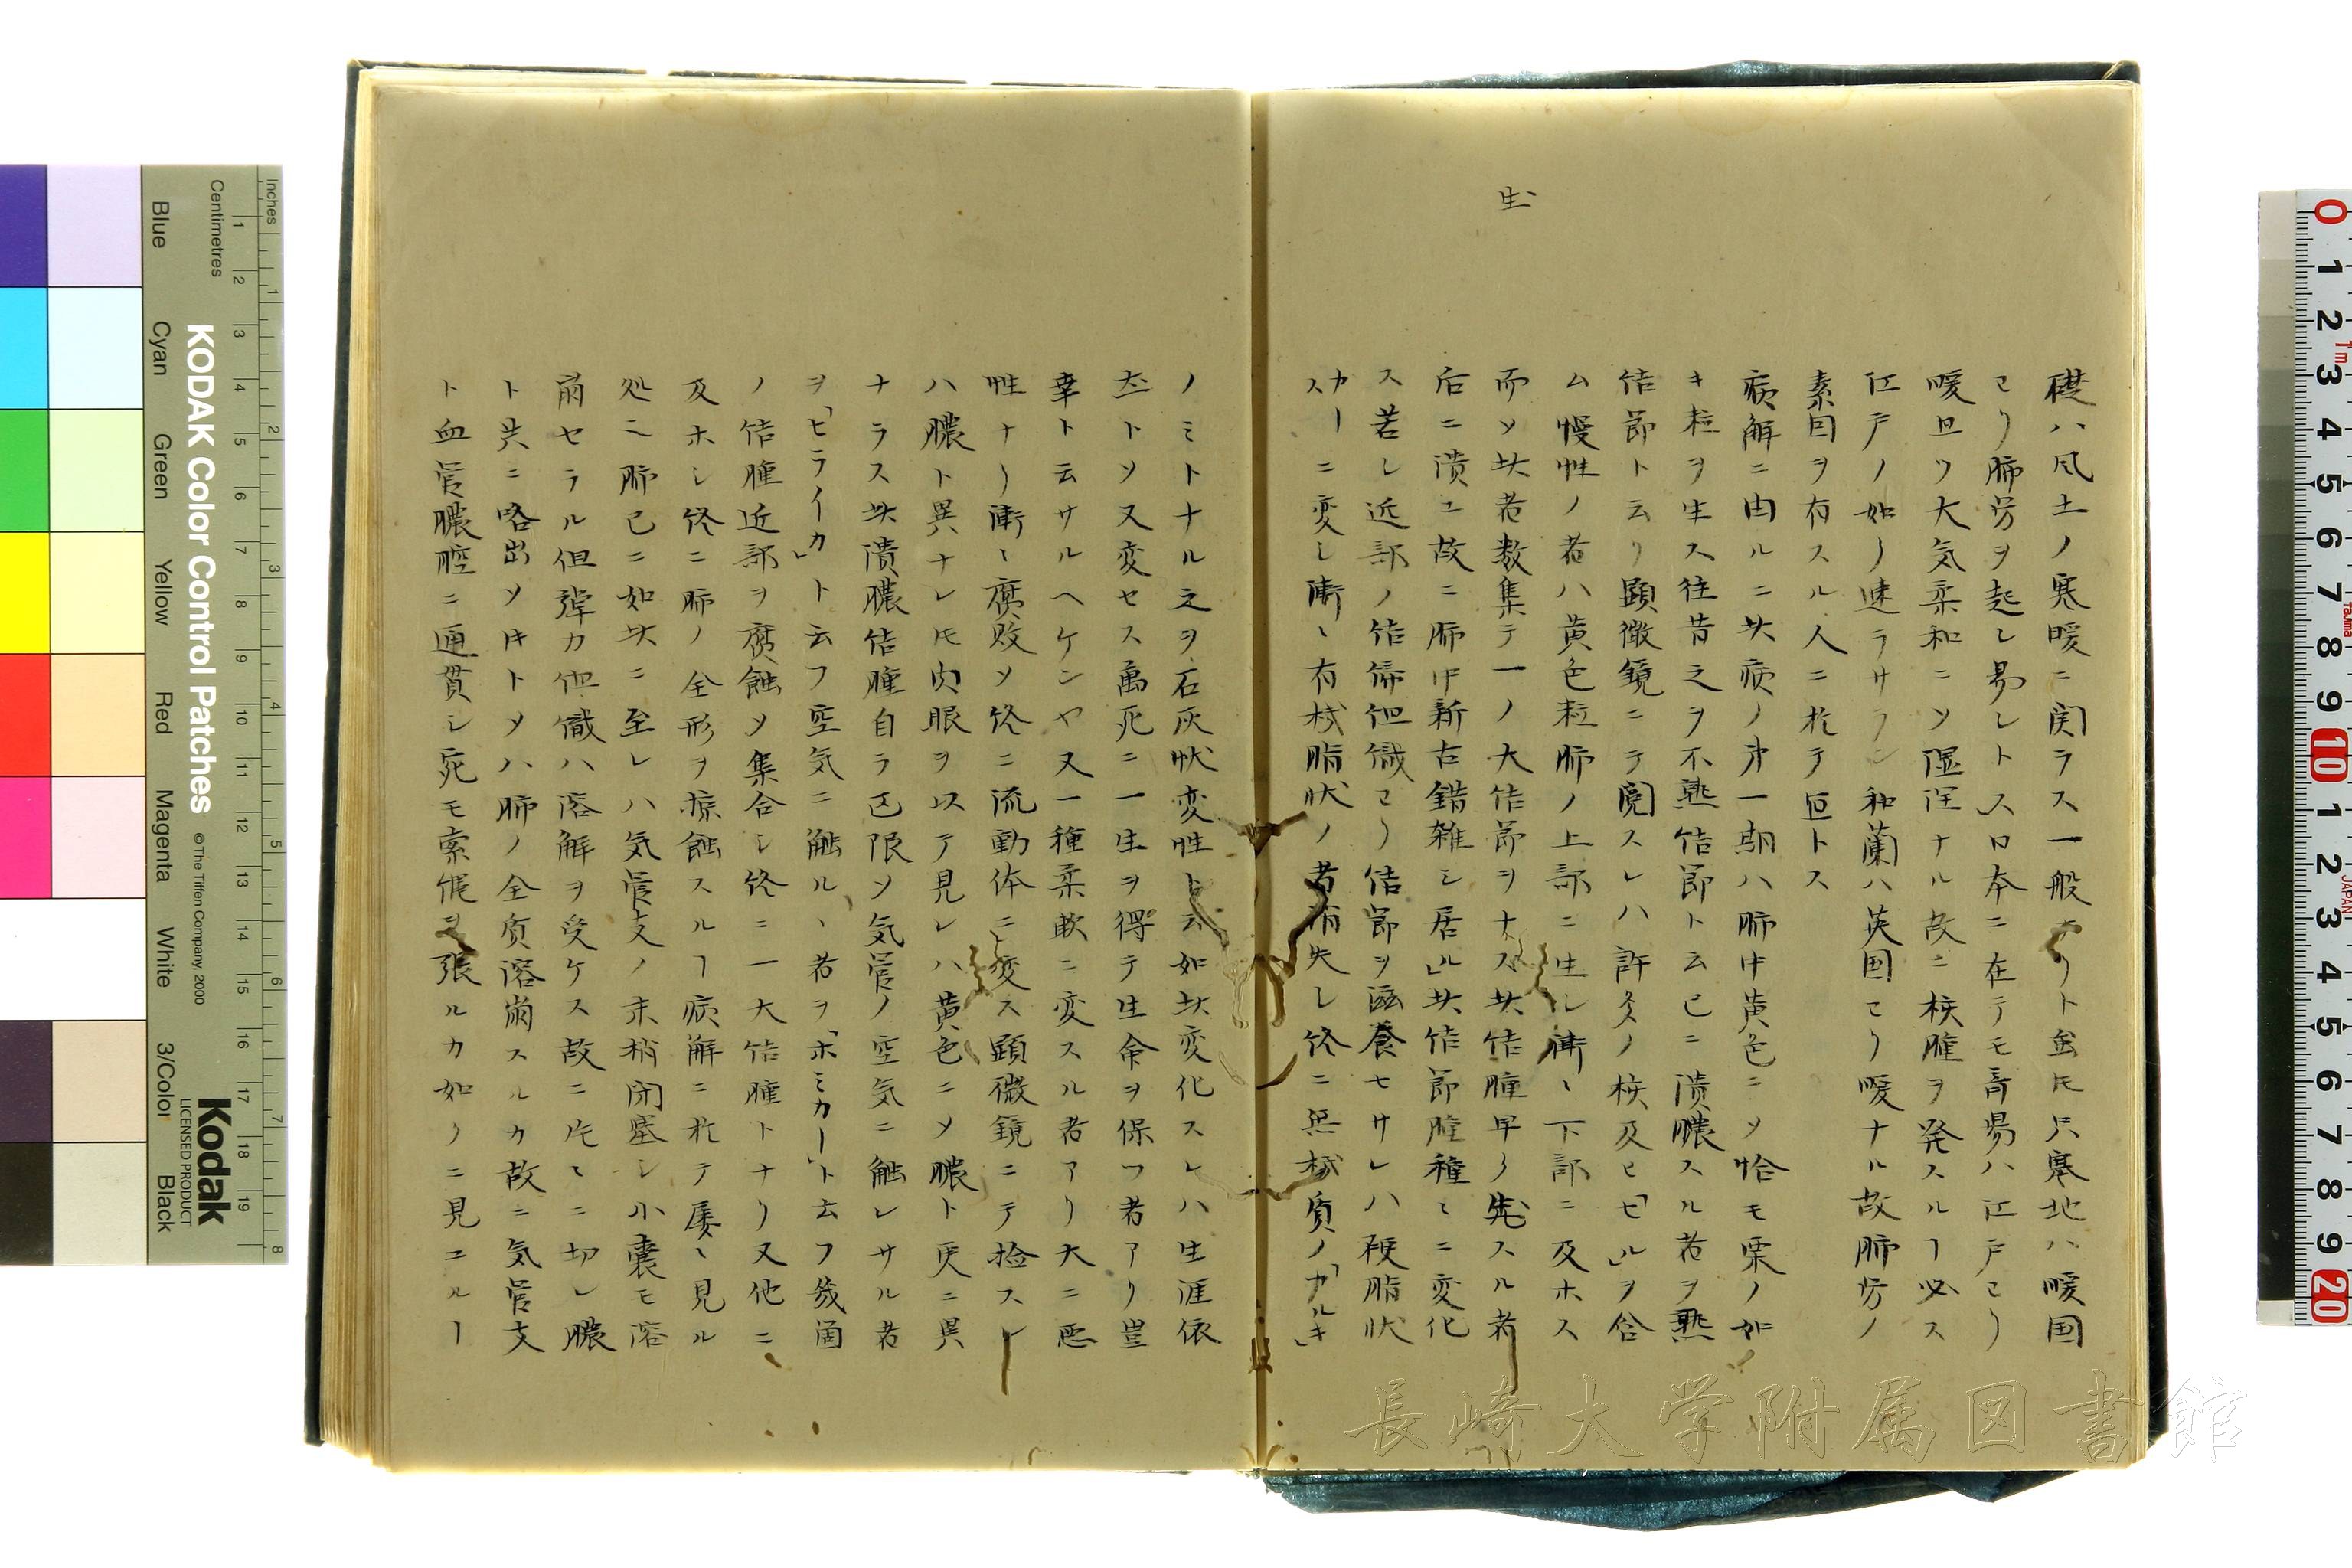 生
礎ハ風土ノ寒暖ニ関ラス一般ナリト虽𪜈只寒地ハ暖国
ヨリ肺労ヲ起シ易シトス日本ニ在テモ奇易ハ江戸ヨリ
暖且ツ大気柔和ニソ湿淫ナル故ニ核腫ヲ発スルヿ必ス
江戸ノ如ク速ラサラン和蘭ハ英国ヨリ暖ナル故肺労ノ
素因ヲ有スル人ニ於テ宜トス
病解ニ由ルニ此病ノ第一期ハ肺中黄色ニソ恰モ栗ノ如
キ粒ヲ生ス往昔之ヲ不熟結節ト云已ニ潰膿スル者ヲ熟
結節ト云リ顕微鏡ニテ閲スレハ許多ノ核及ヒ「セル」ヲ含
ム慢性ノ者ハ黄色粒肺ノ上部ニ生シ漸々下部ニ及ホス
而ソ此者数集テ一ノ大結節ヲナス此結腫早ク先スル者
后ニ潰ユ故ニ肺中新古錯雑シ居ル」此結節腫種々ニ変化
ス若シ近部ノ結締組織ヨリ結節ヲ滋養セサレハ硬脂状
ニ変シ漸々有機脂状ノ者消失シ終ニ無機質ノ「カルキ」
カーース
ノミトナル之ヲ石灰状変性ト云如此変化スレハ生涯依
然トソ又変セス萬死ニ一生ヲ得テ生命ヲ保ツ者アリ豈
幸ト云サルヘケンヤ又一種柔軟ニ変スル者アリ大ニ悪
性ナリ漸々腐敗ソ終ニ流動体ニ変ス顕微鏡ニテ捡スレ
ハ膿ト異ナレ𪜈肉眼ヲ以テ見レハ黄色ニソ膿ト更ニ異
ナラス此潰膿結腫自ラ区限ソ気管ノ空気ニ触レサル者
ヲ「ヒライカ」ト云フ空気ニ触ル、者ヲ「ホミカー」ト云フ幾箇
ノ結腫近部ヲ腐蝕ソ集合シ終ニ一大結腫トナリ又他ニ
及ホシ終ニ肺ノ全形ヲ掠蝕スルヿ病解ニ於テ屡々見ル
処ニ肺已ニ如此ニ至レハ気管支ノ末梢閉塞シ小嚢モ溶
崩セラル但弾力組織ハ溶解ヲ受ケス故ニ片々ニ切レ膿
ト共ニ咯出ソ𪜈トソハ肺ノ全質溶崩スルカ故ニ気管支
ト血管膿腔ニ通貫シ宛モ索縄ヲ張ルカ如クニ見ユルヿ
長崎大学附属図書館
KODAK Color Control Patches
© The Tiffen Company, 2000
Kodak
LICENSED PRODUCT
Inches
Centimetres
Blue
Cyan
Green
Yellow
Red
Magenta
White
3/Color
Black
JAPAN